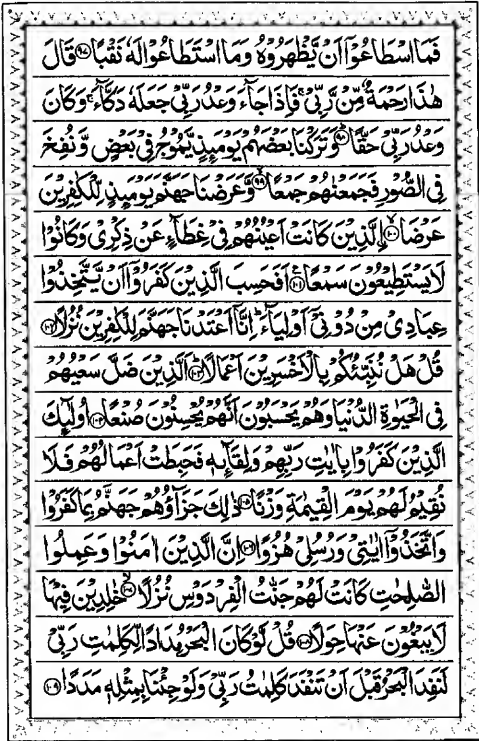 فَمَا اسْطَاعُوْٓا اَنْ يَّظْهَرُوْهُ وَمَا اسْتَطَاعُوْا لَهٗ نَقْبًا ۝۹۷ قَالَ
هٰذَا رَحْمَةٌ مِّنْ رَّبِّيْ ۚ فَاِذَا جَآءَ وَعْدُ رَبِّيْ جَعَلَهٗ دَكَّآءَ ۚ وَكَانَ
وَعْدُ رَبِّيْ حَقًّا ۝۹۸ وَتَرَكْنَا بَعْضَهُمْ يَوْمَئِذٍ يَّمُوْجُ فِيْ بَعْضٍ وَّنُفِخَ
فِي الصُّوْرِ فَجَمَعْنٰهُمْ جَمْعًا ۝۹۹ وَّعَرَضْنَا جَهَنَّمَ يَوْمَئِذٍ لِّلْكٰفِرِيْنَ
عَرْضَا ۝۱۰۰ اِۨلَّذِيْنَ كَانَتْ اَعْيُنُهُمْ فِيْ غِطَآءٍ عَنْ ذِكْرِيْ وَكَانُوْا
لَا يَسْتَطِيْعُوْنَ سَمْعًا ۝۱۰۱ اَفَحَسِبَ الَّذِيْنَ كَفَرُوْٓا اَنْ يَّتَّخِذُوْا
عِبَادِيْ مِنْ دُوْنِيْٓ اَوْلِيَآءَ ؕ اِنَّآ اَعْتَدْنَا جَهَنَّمَ لِلْكٰفِرِيْنَ نُزُلًا ۝۱۰۲
قُلْ هَلْ نُنَبِّئُكُمْ بِالْاَخْسَرِيْنَ اَعْمَالًا ۝۱۰۳ اَلَّذِيْنَ ضَلَّ سَعْيُهُمْ
فِي الْحَيٰوةِ الدُّنْيَا وَهُمْ يَحْسَبُوْنَ اَنَّهُمْ يُحْسِنُوْنَ صُنْعًا ۝۱۰۴ اُولٰٓئِكَ
الَّذِيْنَ كَفَرُوْا بِاٰيٰتِ رَبِّهِمْ وَلِقَآئِهٖ فَحَبِطَتْ اَعْمَالُهُمْ فَلَا
نُقِيْمُ لَهُمْ يَوْمَ الْقِيٰمَةِ وَزْنًا ۝۱۰۵ ذٰلِكَ جَزَآؤُهُمْ جَهَنَّمُ بِمَا كَفَرُوْا
وَاتَّخَذُوْٓا اٰيٰتِيْ وَرُسُلِيْ هُزُوًا ۝۱۰۶ اِنَّ الَّذِيْنَ اٰمَنُوْا وَعَمِلُوا
الصّٰلِحٰتِ كَانَتْ لَهُمْ جَنّٰتُ الْفِرْدَوْسِ نُزُلًا ۝۱۰۷ خٰلِدِيْنَ فِيْهَا
لَا يَبْغُوْنَ عَنْهَا حِوَلًا ۝۱۰۸ قُلْ لَّوْ كَانَ الْبَحْرُ مِدَادًا لِّكَلِمٰتِ رَبِّيْ
لَنَفِدَ الْبَحْرُ قَبْلَ اَنْ تَنْفَدَ كَلِمٰتُ رَبِّيْ وَلَوْ جِئْنَا بِمِثْلِهٖ مَدَدًا ۝۱۰۹